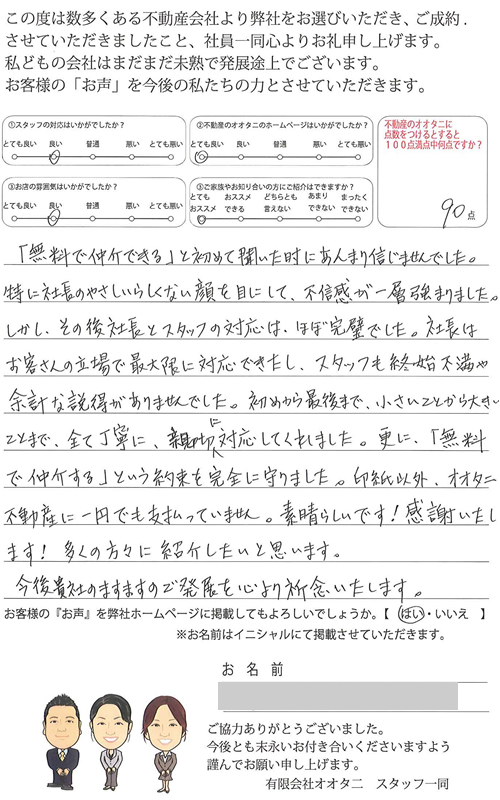 この度は数多くある不動産会社より弊社をお選びいただき、ご成約.
させていただきましたこと、社員一同心よりお礼申し上げます。
私どもの会社はまだまだ未熟で発展途上でございます。
お客様の「お声」を今後の私たちの力とさせていただきます。
①スタッフの対応はいかがでしたか？
とても良い 良い 普通 悪い とても悪い
②不動産のオオタニのホームページはいかがでしたか？
とても良い 良い 普通 悪い とても悪い
不動産のオオタニに
点数をつけるとすると
１００点満点中何点ですか？
90点
③お店の雰囲気はいかがでしたか？
とても良い 良い 普通 悪い とても悪い
⑤ご家族やお知り合いの方にご紹介はできますか？
とても オススメ どちらとも あまり まったく
オススメ できる 言えない できない できない
「無料で仲介できる」と初めて聞いた時にあんまり信じませんでした。
特に社長のやさしいらしくない顔を目にして、不信感が一層強まりました。
しかし、その後社長とスタッフの対応は、ほぼ完璧でした。社長は
お客さんの立場で最大限に対応できたし、スタッフも終始不満や
余計な説得がありませんでした。初めから最後まで、小さいことから大きい
ことまで、全て丁寧に、親切に対応してくれました。更に、「無料
で仲介する」という約束を完全に守りました。印紙以外、オオタニ
不動産に一円でも支払っていません。素晴らしいです！感謝いたし
ます！多くの方々に紹介したいと思います。
今後貴社のますますのご発展を心より祈念いたします。
お客様の『お声』を弊社ホームページに掲載してもよろしいでしょうか。【 はい・いいえ 】
※お名前はイニシャルにて掲載させていただきます。
お 名 前
ご協力ありがとうございました。
今後とも末永いお付き合いくださいますよう
謹んでお願い申し上げます。
有限会社オオタニ スタッフ一同